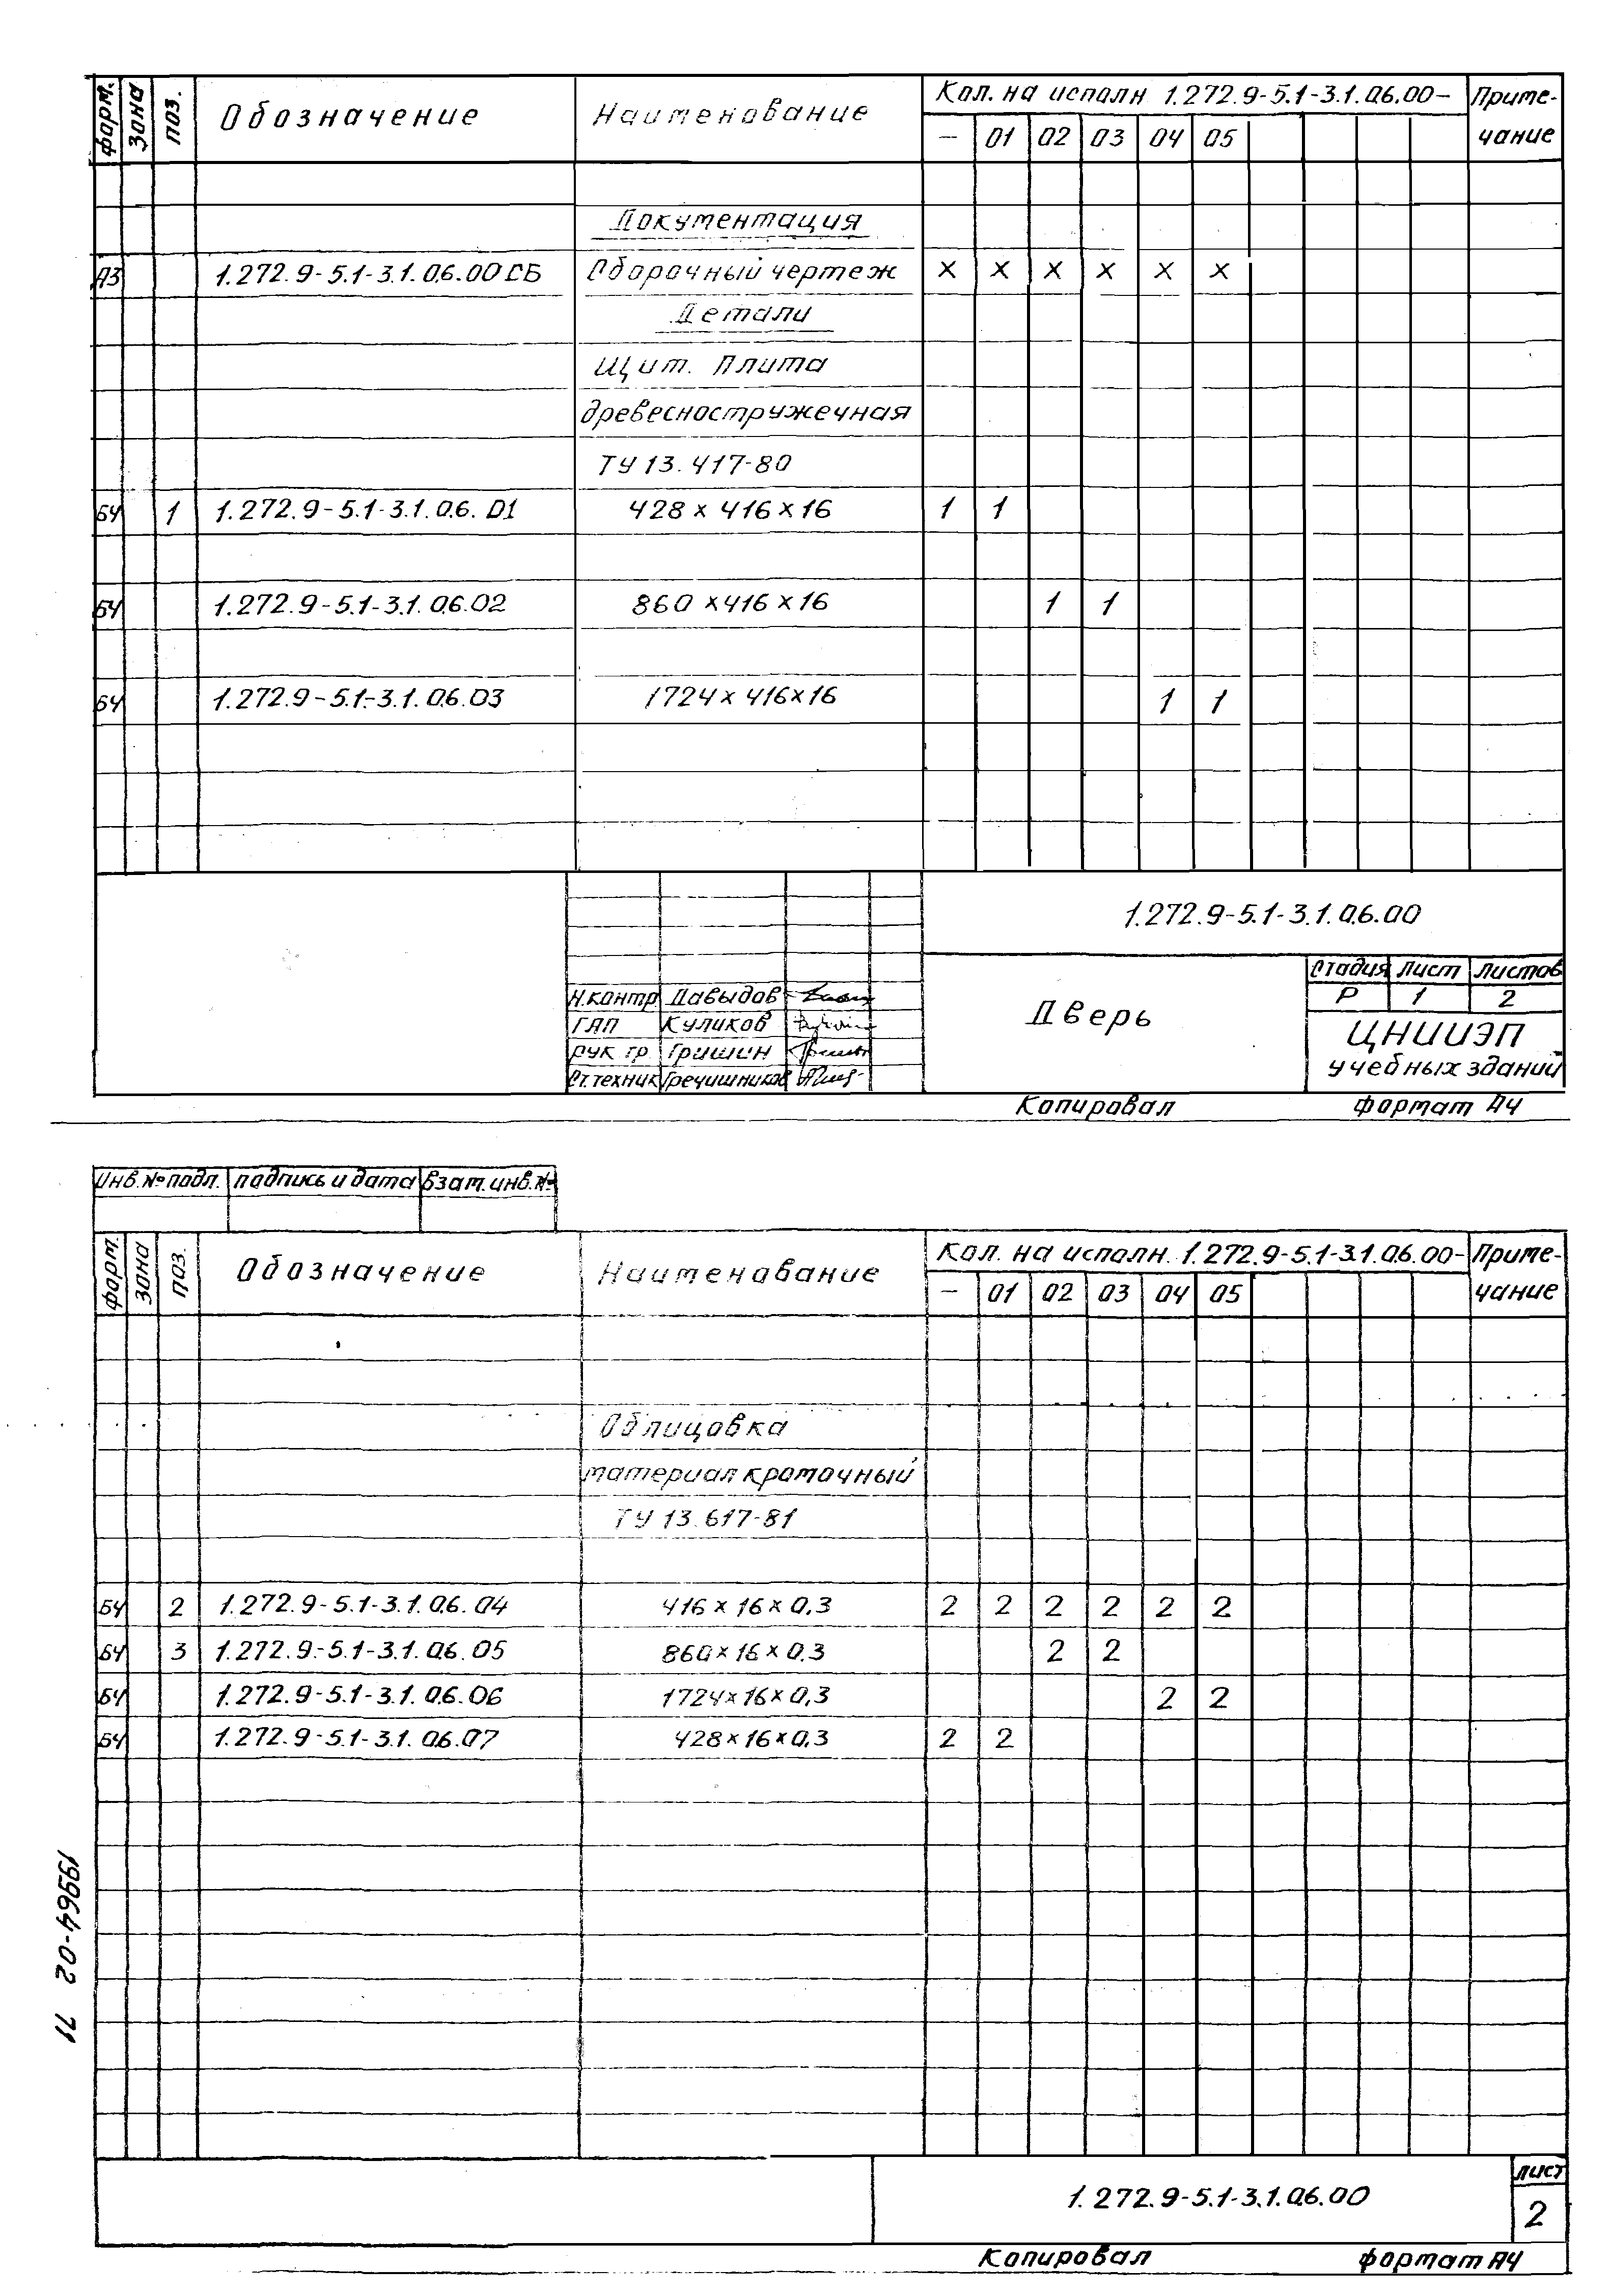 форм. Зона поз. Обозначение Наименование Кол. на исполн 1.272.9-5.1-3.1.06.00- Приме-
чание
— 01 02 03 04 05
Документация
А3 1.272.9-5.1-3.1.06.00 СБ Сборочный чертеж х х х х х х
Детали
Щит. Плита
древесностружечная
ТУ 13.417-80
БЧ 1 1.272.9-5.1-3.1.06.01 428 х 416 х 16 1 1
БЧ 1.272.9-5.1-3.1.06.02 860 х 416 х 16 1 1
БЧ 1.272.9-5.1-3.1.06.03 1724 х 416 х 16 1 1
1.272.9-5.1-3.1.06.00
Дверь
Стадия Лист Листов
Р 1 2
Н.контр Давыдов
ГАП Куликов
рук гр. Гришин
Ст.техник Гречишников
ЦНИИЭП
учебных зданий
Копировал формат А4
Инв.№ подл. подпись и дата взам.инв.№
форм. зона поз. Обозначение Наименование Кол. на исполн. 1.272.9-5.1-3.1.06.00- Приме-
чание
— 01 02 03 04 05
Облицовка
материал кромочный
ТУ 13.617-81
БЧ 2 1.272.9-5.1-3.1.06.04 416 х 16 х 0,3 2 2 2 2 2 2
БЧ 3 1.272.9-5.1-3.1.06.05 860 х 16 х 0.3 2 2
БЧ 1.272.9-5.1-3.1.06.06 1724 х 16 х 0,3 2 2
БЧ 1.272.9-5.1-3.1.06.07 428 х 16 х 0,3 2 2
19964-02 71
1.272.9-5.1-3.1.06.00
лист
2
Копировал формат А4